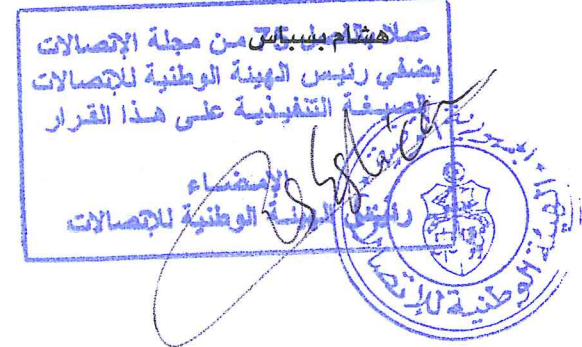 عملا بالفصل من مجلة الإتصالات
هشام بسباس
يضفي رئيس الهيئة الوطنية للإتصالات
الصيغة التنفيذية على هذا القرار
الإمضاء
رئيس الهيئة الوطنية للإتصالات
الهيئة الوطنية للإتصالات